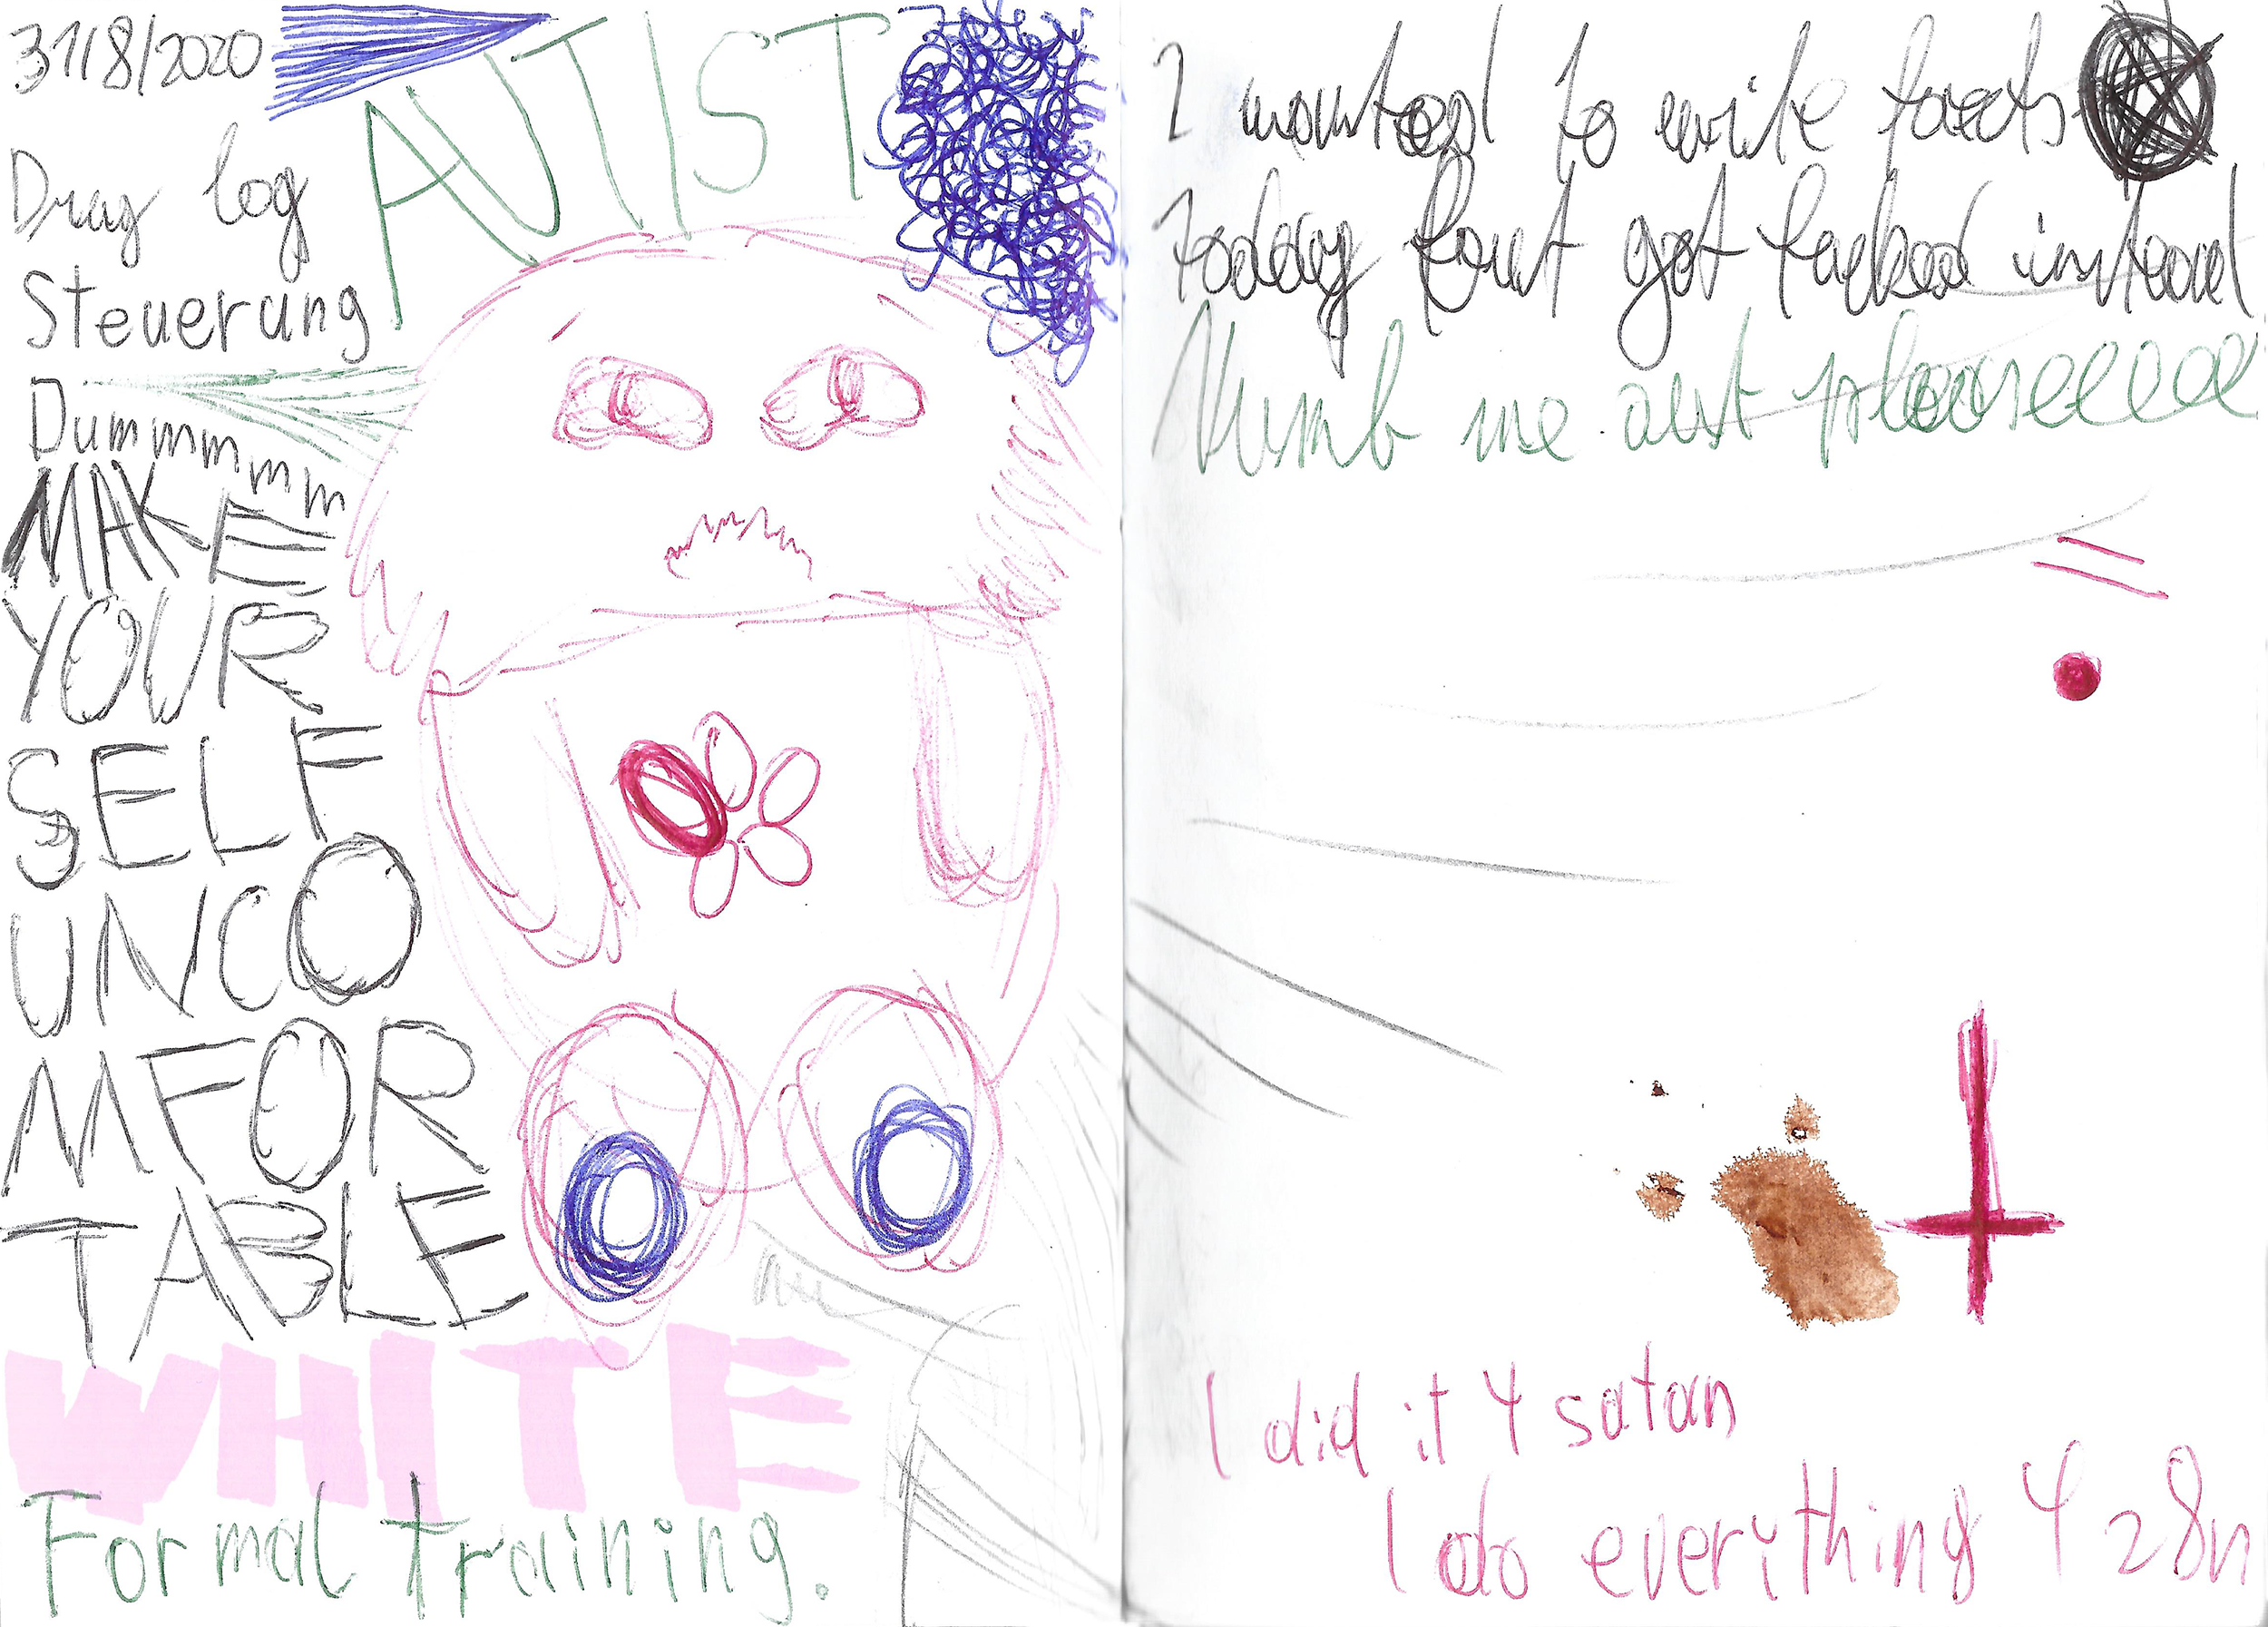 31/8/2020
AUTIST
Drag log
Steuerung
Dummmmmm
MAKE
YOUR
SELF
UNCO
MFOR
TABLE
WHITE
Formal training.
I wanted to write facts
today but got fucked instead
Numb me out pleaseeeeee
I did it 4 satan
I do everything 4 z8n